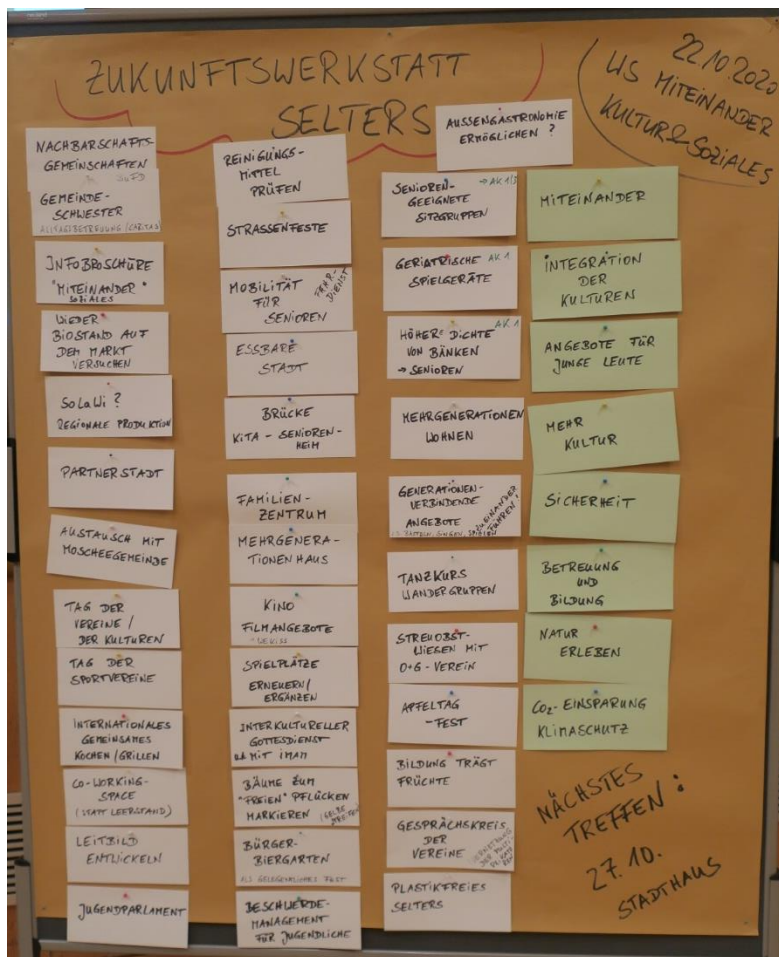 ZUKUNFTSWERKSTATT
SELTERS
22.10.2020
MITEINANDER
KULTUR & SOZIALES
NACHBARSCHAFTS-
GEMEINSCHAFTEN
GEMEINDE-
SCHWESTER
ALLTAGSBETREUUNG / CARITAS
INFOBROSCHÜRE
"MITEINANDER"
SOZIALES
WIEDER
BIOSTAND AUF
DEM MARKT
VERSUCHEN
SoLaWi ?
REGIONALE PRODUKTION
PARTNERSTADT
AUSTAUSCH MIT
MOSCHEEGEMEINDE
TAG DER
VEREINE /
DER KULTUREN
TAG DER
SPORTVEREINE
INTERNATIONALES
GEMEINSAMES
KOCHEN / GRILLEN
CO-WORKING-
SPACE
(STATT LEERSTAND)
LEITBILD
ENTWICKELN
JUGENDPARLAMENT
REINIGUNGS-
MITTEL
PRÜFEN
STRASSENFESTE
MOBILITÄT
FÜR
SENIOREN
FAHR-
DIENST
ESSBARE
STADT
BRÜCKE
KITA - SENIOREN-
HEIM
FAMILIEN-
ZENTRUM
MEHRGENERA-
TIONENHAUS
KINO
FILMANGEBOTE
SPIELPLÄTZE
ERNEUERN /
ERGÄNZEN
INTERKULTURELLER
GOTTESDIENST
MIT IMAM
BÄUME ZUM
"FREIEN" PFLÜCKEN
MARKIEREN
BÜRGER-
BIERGARTEN
ALS GELEGENTLICHES FEST
BESCHWERDE-
MANAGEMENT
FÜR JUGENDLICHE
AUSSENGASTRONOMIE
ERMÖGLICHEN ?
SENIOREN-
GEEIGNETE
SITZGRUPPEN
GERIATRISCHE AK 1
SPIELGERÄTE
HÖHERE DICHTE AK 1
VON BÄNKEN
→ SENIOREN
MEHRGENERATIONEN
WOHNEN
GENERATIONEN-
VERBINDENDE
ANGEBOTE
ZUEINANDER
FÜHREN!
TANZKURS
WANDERGRUPPEN
STREUOBST-
WIESEN MIT
O+G - VEREIN
APFELTAG
- FEST
BILDUNG TRÄGT
FRÜCHTE
GESPRÄCHSKREIS
DER
VEREINE
PLASTIKFREIES
SELTERS
MITEINANDER
INTEGRATION
DER
KULTUREN
ANGEBOTE FÜR
JUNGE LEUTE
MEHR
KULTUR
SICHERHEIT
BETREUUNG
UND
BILDUNG
NATUR
ERLEBEN
CO2-EINSPARUNG
KLIMASCHUTZ
NÄCHSTES
TREFFEN:
27.10.
STADTHAUS